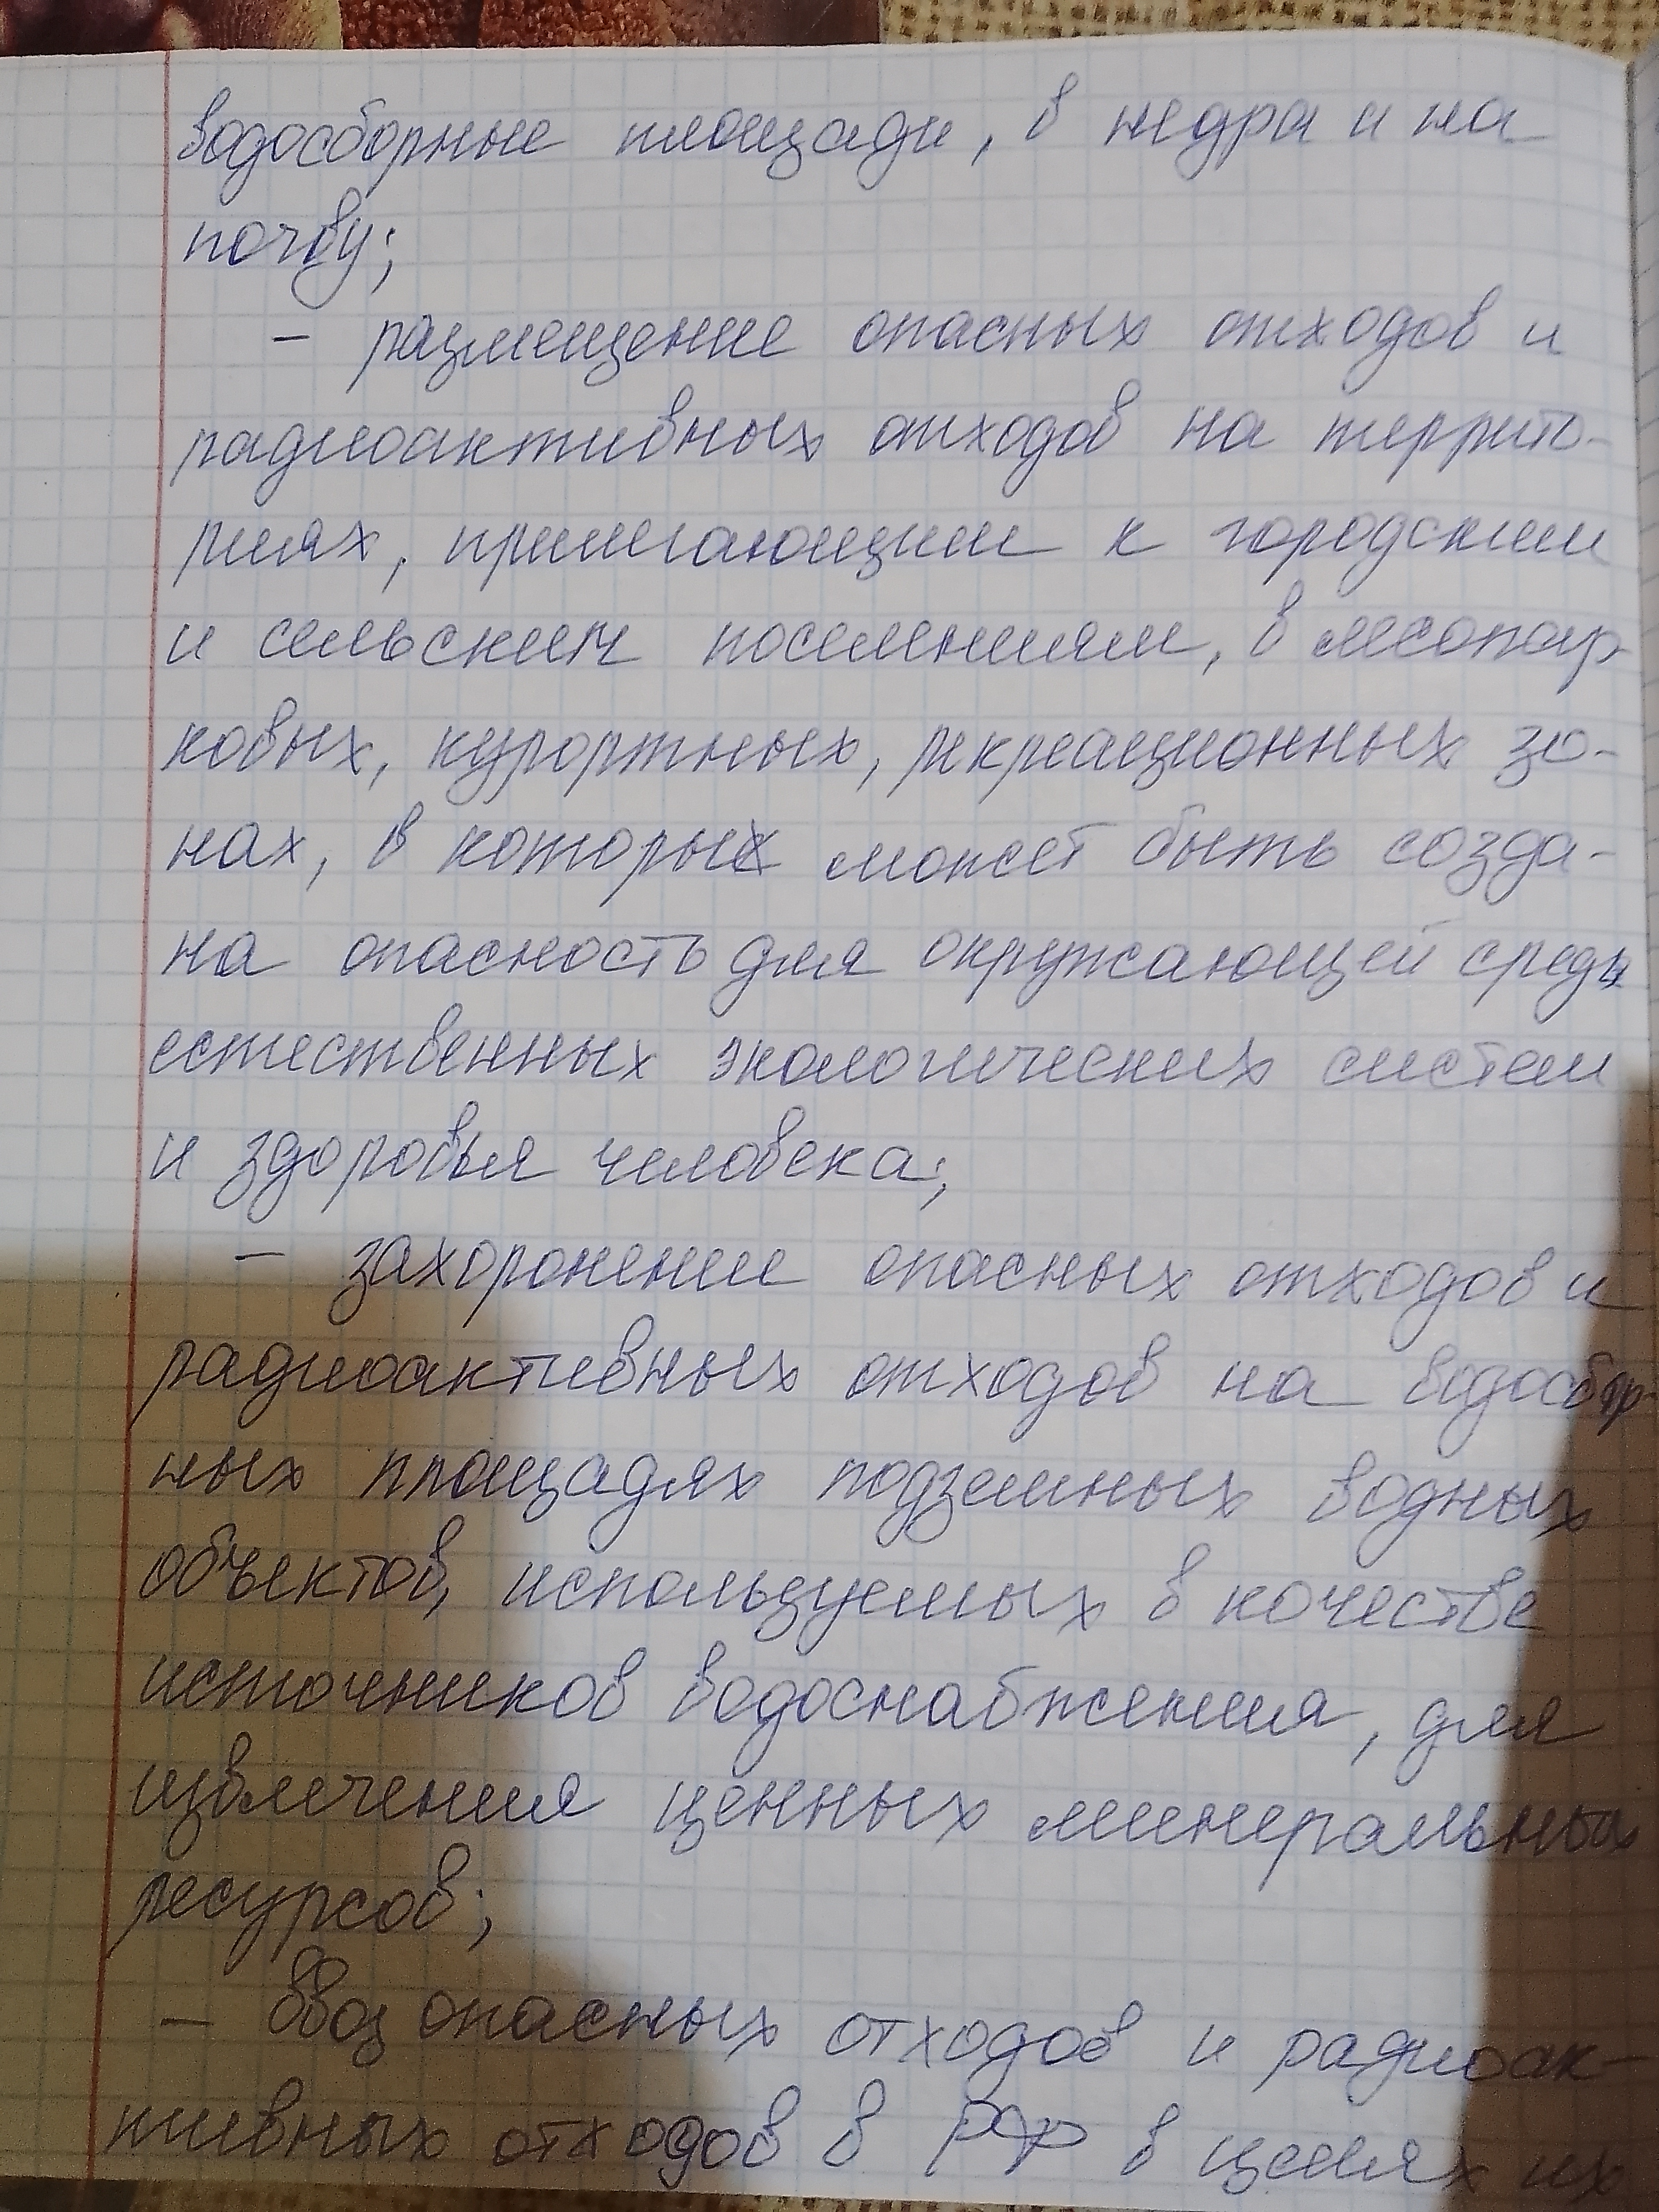 водосборные площади, в недра и на
почву;
– размещение опасных отходов и
радиоактивных отходов на террито-
риях, прилегающим к городским
и сельским поселениям, в лесопар-
ковых, курортных, рекреационных зо-
нах, в которых может быть созда-
на опасность для окружающей среды
естественных экологических систем
и здоровья человека;
– захоронение опасных отходов и
радиоактивных отходов на водосбор-
ных площадях подземных водных
объектов, используемых в качестве
источников водоснабжения, для
извлечения ценных минеральных
ресурсов;
– ввоз опасных отходов и радиоак-
тивных отходов в РФ в целях их